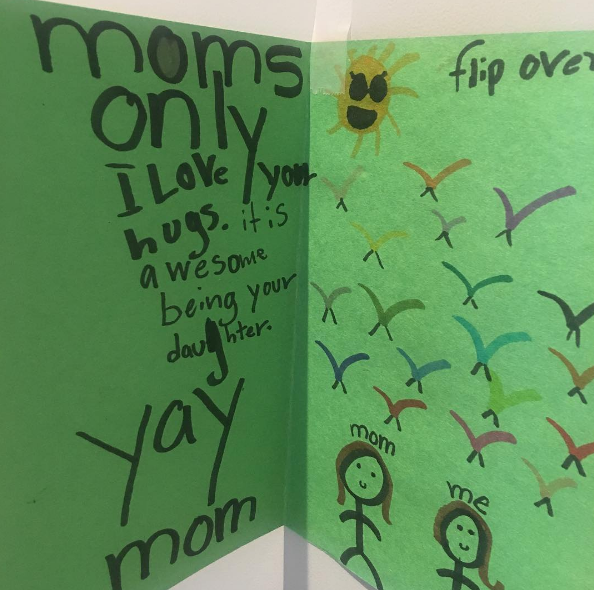 moms
only
I Love your
hugs. it is
awesome
being your
daughter.
yay
mom
flip over
mom
me